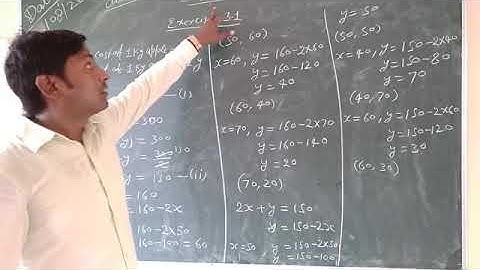 Exercise 3.1
cost of 1 kg apple
of 1 kg
(i)
300
y) = 300
y = 150 — (ii)
= 160
= 160-2x
160-2x50
160-100 = 60
(50, 60)
x=60, y = 160-2x60
y = 160-120
y = 40
(60, 40)
x=70, y = 160-2x70
y = 160-140
y = 20
(70, 20)
2x + y = 150
y = 150-2x
x=50 y = 150-2x50
y = 150-100
y = 50
(50, 50)
x=40, y = 150-2x40
y = 150-80
y = 70
(40, 70)
x=60, y = 150-2x60
y = 150-120
y = 30
(60, 30)